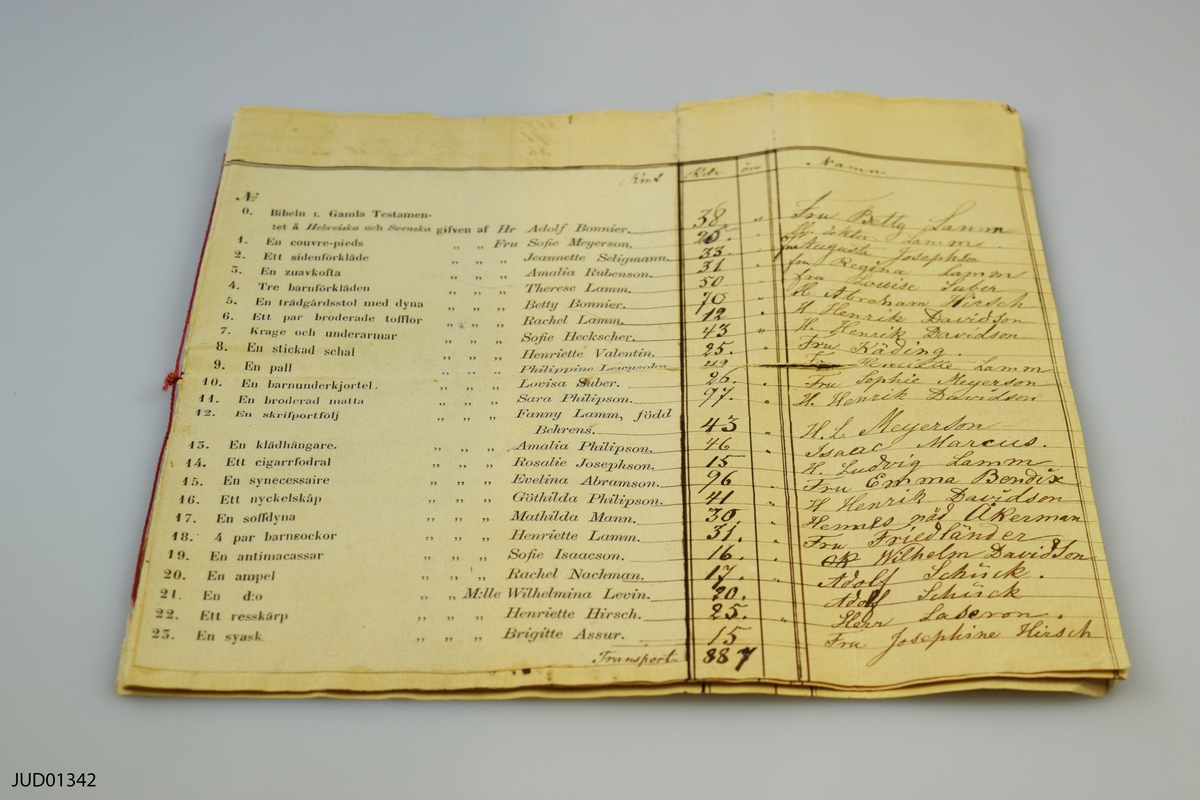 Rdr öre Namn
№
0. Bibeln 1. Gamla Testamen-
tet å Hebreiska och Svenska gifven af Hr Adolf Bonnier. 38 „ Fru Betty Lamm
1. En couvre-pieds „ „ Fru Sofie Meyerson. Lamm.
2. Ett sidenförkläde „ „ „ Jeannette Seligmann. 33. Augusta Josephson
3. En zuavkofta „ „ „ Amalia Rubenson. 31 „ fru Regina Lamm
4. Tre barnförkläden „ „ „ Therese Lamm. 50 fru Louise Suber
5. En trädgårdsstol med dyna „ „ „ Betty Bonnier. 70 „ H Abraham Hirsch
6. Ett par broderade tofflor „ „ „ Rachel Lamm. 12 „ H Henrik Davidson
7. Krage och underarmar „ „ „ Sofie Heckscher. 43 „ H. Henrik Davidson
8. En stickad schal „ „ „ Henriette Valentin. 25. „ Fru Käding.
9. En pall „ „ „ Philippine Lewysohn 49 Henriette Lamm
10. En barnunderkjortel. „ „ „ Lovisa Suber. 26. „ Fru Sophie Meyerson
11. En broderad matta „ „ „ Sara Philipson. 97. „ H. Henrik Davidson
12. En skrifportfölj „ „ „ Fanny Lamm, född
Behrens. 43 „ H. L. Meyerson
13. En klädhängare. „ „ „ Amalia Philipson. 46 „ Isaac Marcus.
14. Ett cigarrfodral „ „ „ Rosalie Josephson. 15 H. Ludvig Lamm
15. En synecessaire „ „ „ Evelina Abramson. 96 „ Fru Emma Bendix
16. Ett nyckelskåp „ „ „ Göthilda Philipson. 41 „ H Henrik Davidson
17. En soffdyna „ „ „ Mathilda Mann. 30. „ Hennes nåd Åkerman
18. 4 par barnsockor „ „ „ Henriette Lamm. 31. „ Fru Friedländer
19. En antimacassar „ „ „ Sofie Isaacson. 16. „ Wilhelm Davidson
20. En ampel „ „ „ Rachel Nachman. 17. „ Adolf Schück.
21. En d:o „ „ M:lle Wilhelmina Levin. 20. Adolf Schück
22. Ett resskärp „ „ „ Henriette Hirsch. 25. „ Herr
23. En syask „ „ „ Brigitte Assur. 15 Fru Josephine Hirsch
Transport 887
JUD01342